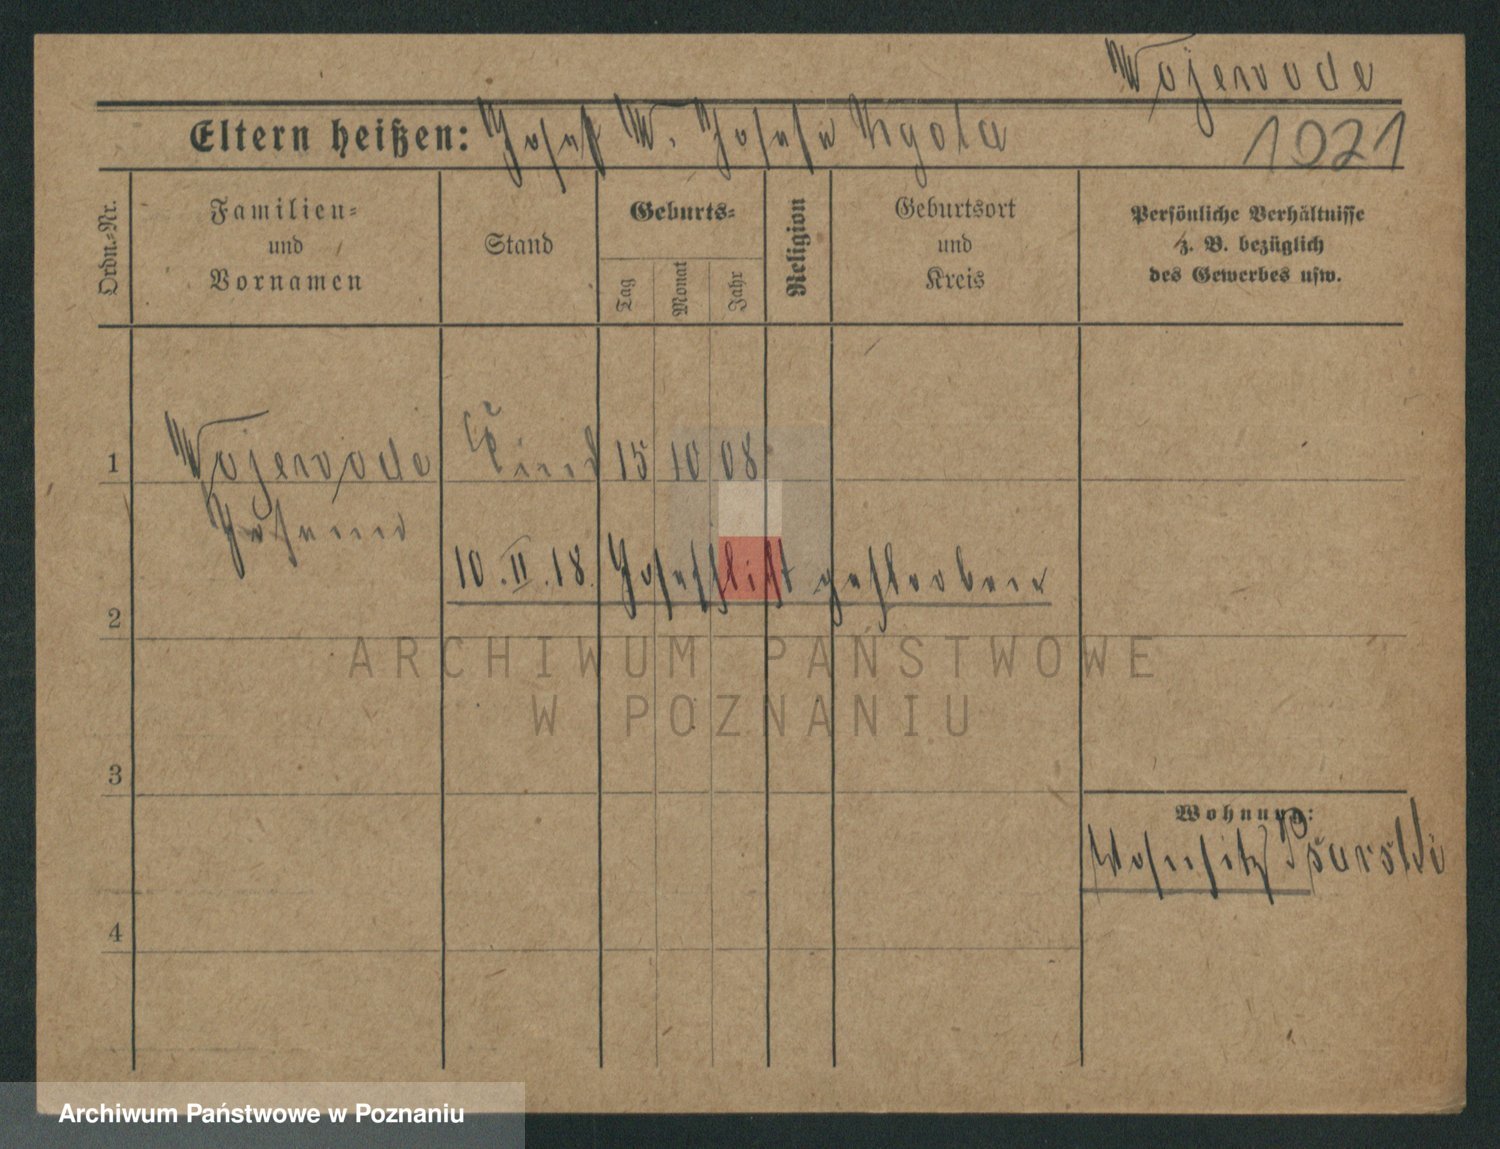 Wojewode
Eltern heißen: Josef W. Josefa Ngola
1921
Ordn.-Nr.
Familien-
und
Vornamen
Stand
Geburts-
Tag
Monat
Jahr
Religion
Geburtsort
und
Kreis
Persönliche Verhältnisse
z. B. bezüglich
des Gewerbes usw.
1
Wojewode Kind 15 10 08
10. II. 18. gestorben
2
ARCHIWUM PAŃSTWOWE
W POZNANIU
3
Wohnung:
Wohnsitz Psarski
4
Archiwum Państwowe w Poznaniu